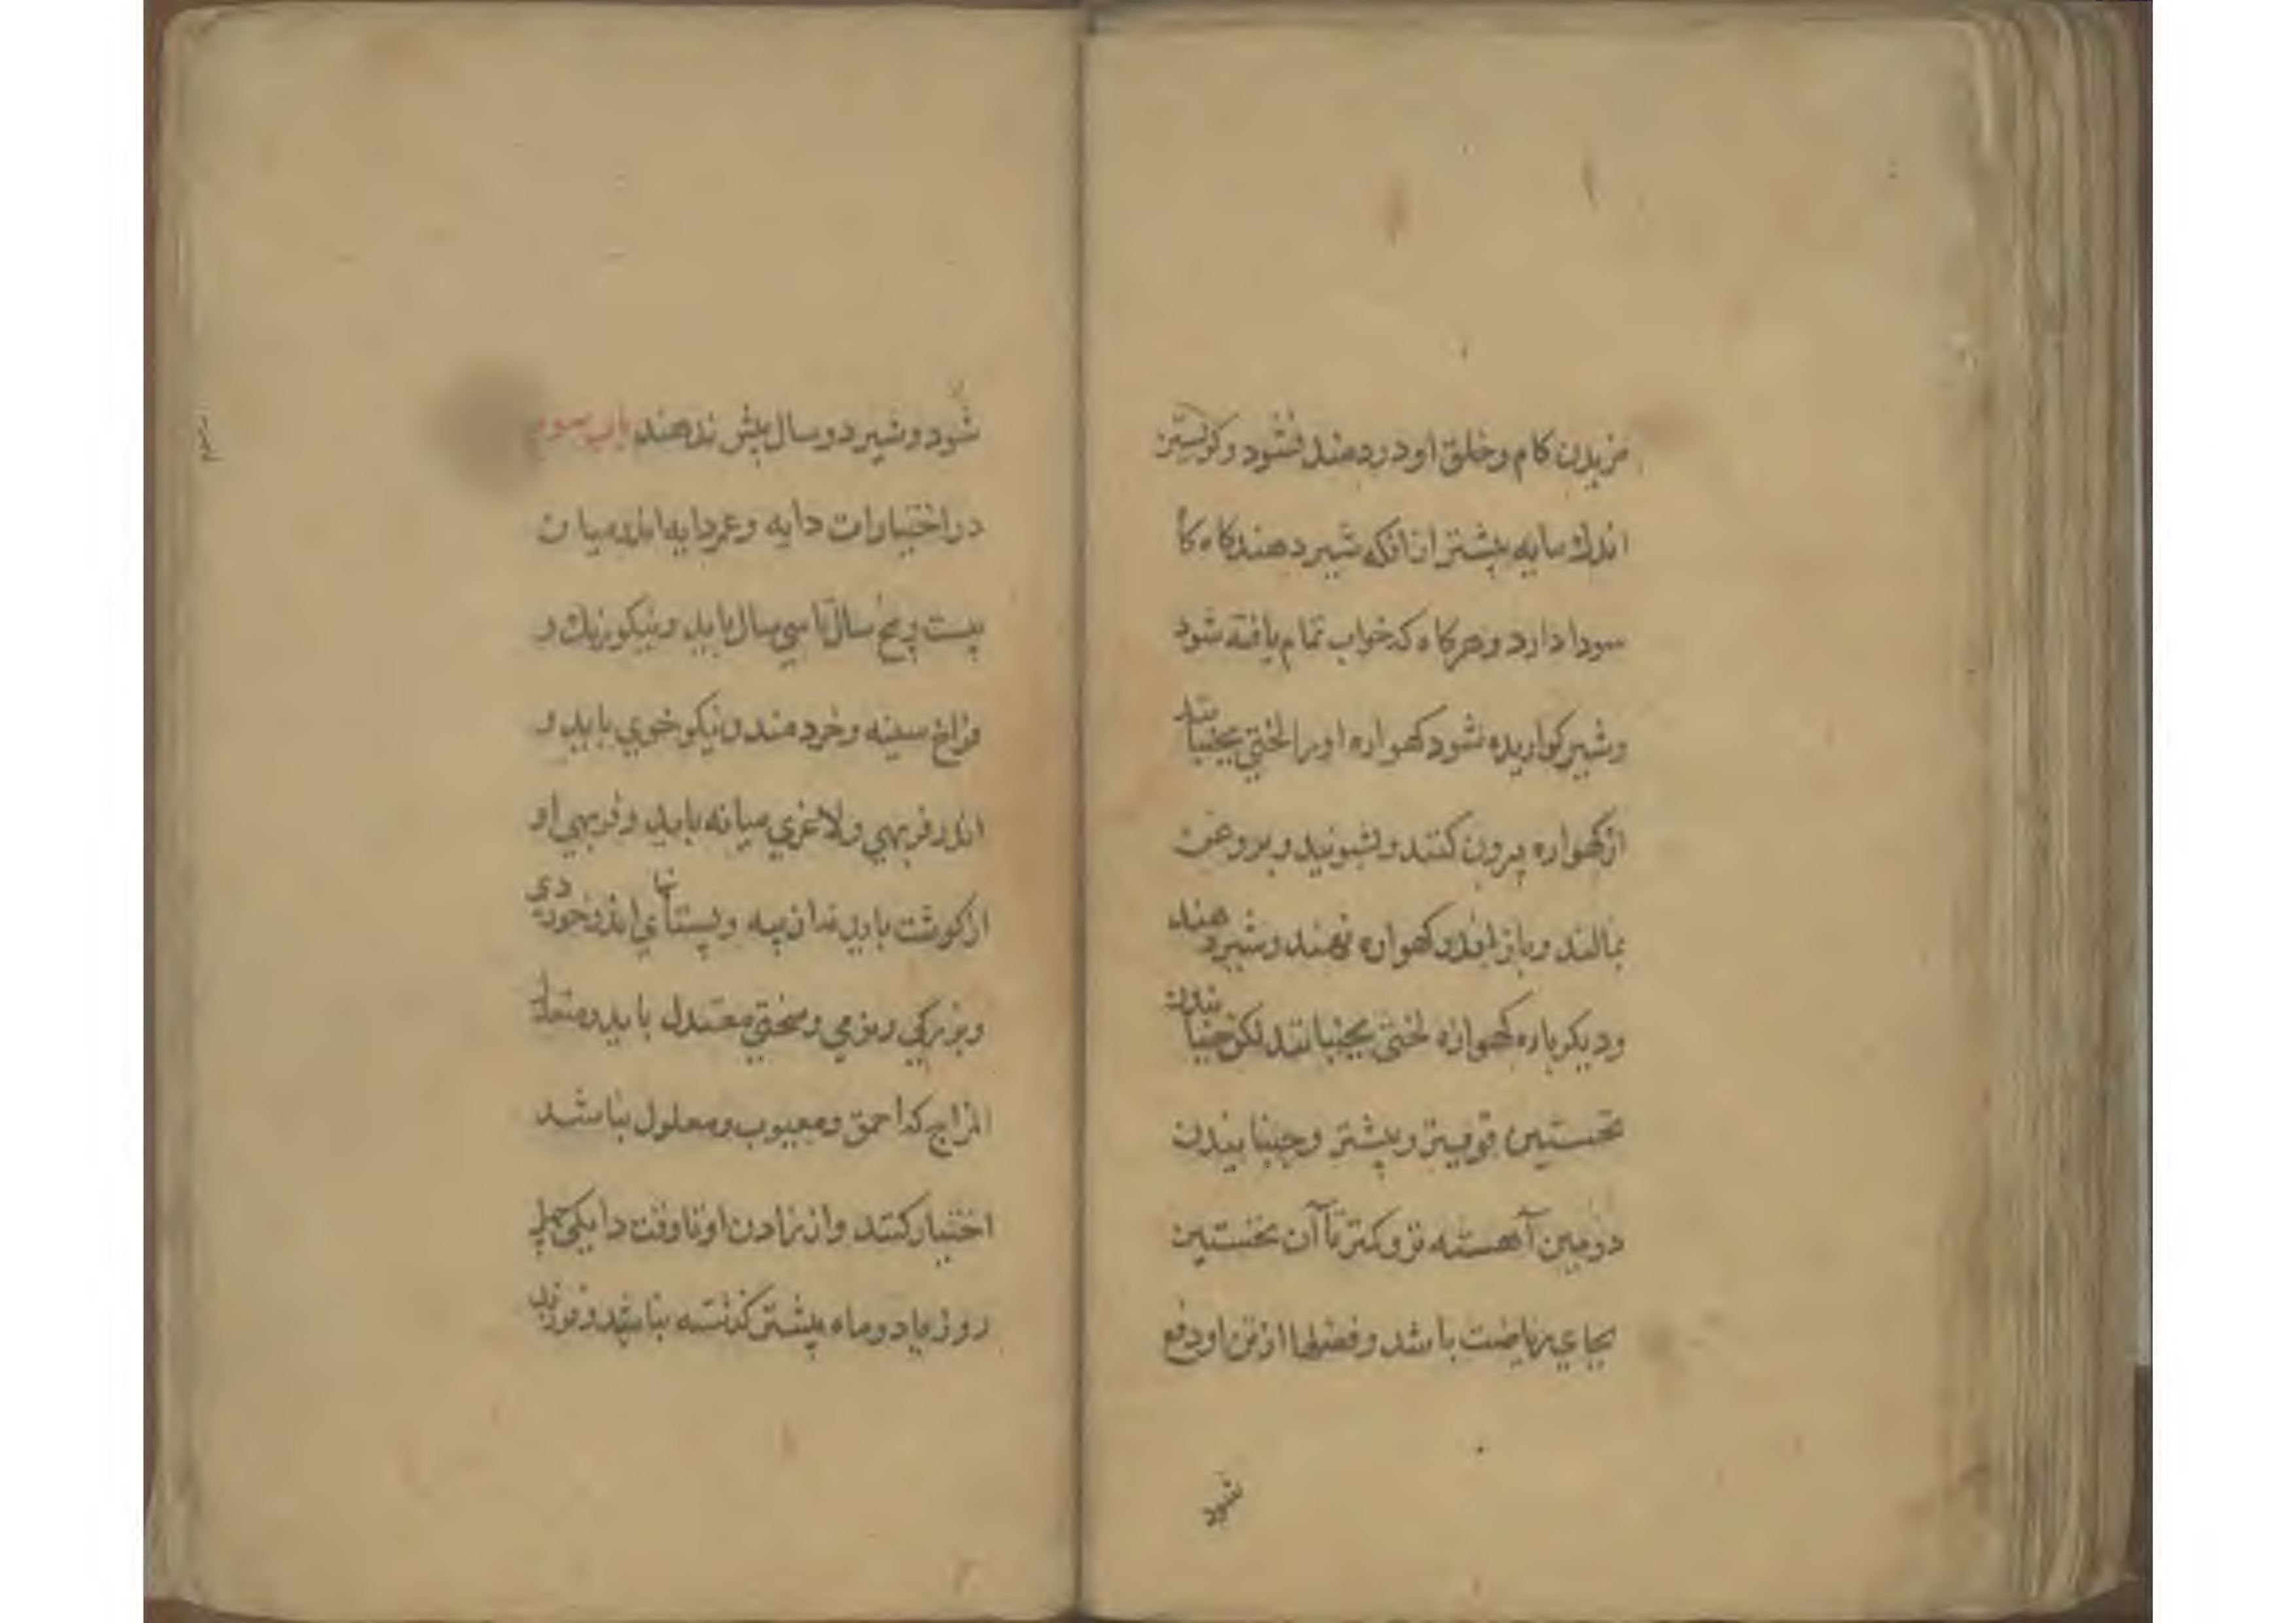 مزیدن کام و خلق او دردمند نشود و کریستن
اندك مایه پیشتر از انکه شیر دهند کاه کا
سودا دارد و هرکاه که خواب تمام یافته شود
و شیر کواریده شود کهواره او را لختی بجنبانند
از کهواره بیرون کنند و بشویند و بروغن
بمالند و باز اندر کهواره نهند و شیر دهند
و دیکر باره کهواره لختی بجنبانند لکن جنبانیدن
نخستین قوی‌تر و بیشتر و جنبانیدن
دومین آهسته تر و کمتر تا آن نخستین
بجای ریاضت باشد و فضلها از تن او دفع
شود
شود و شیر دو سال بیش ندهند باب سوم
در اختیارات دایه و عمر دایه اندر میان
بیست و پنج سال تا سی سال باید و نیکو رنك و
فراخ سینه و خردمند و نیکو خوی باید و
اندر فربهی و لاغری میانه باید و فربهی او
از کوشت باید نه از پیه و پستانهای اندر خوردی
و بزرکی و نرمی و سختی معتدل باید و معتدل
المزاج که احمق و معیوب و معلول نباشد
اختیار کنند و از زادن او تا وقت دایکی چهل
روز یا دو ماه بیشتر کذشته نباشد و فرزند